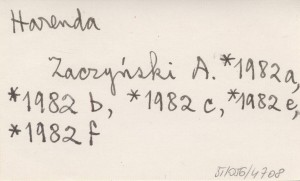 Harenda
Zaczyński A. *1982a,
*1982 b, *1982 c, *1982 e,
*1982 f